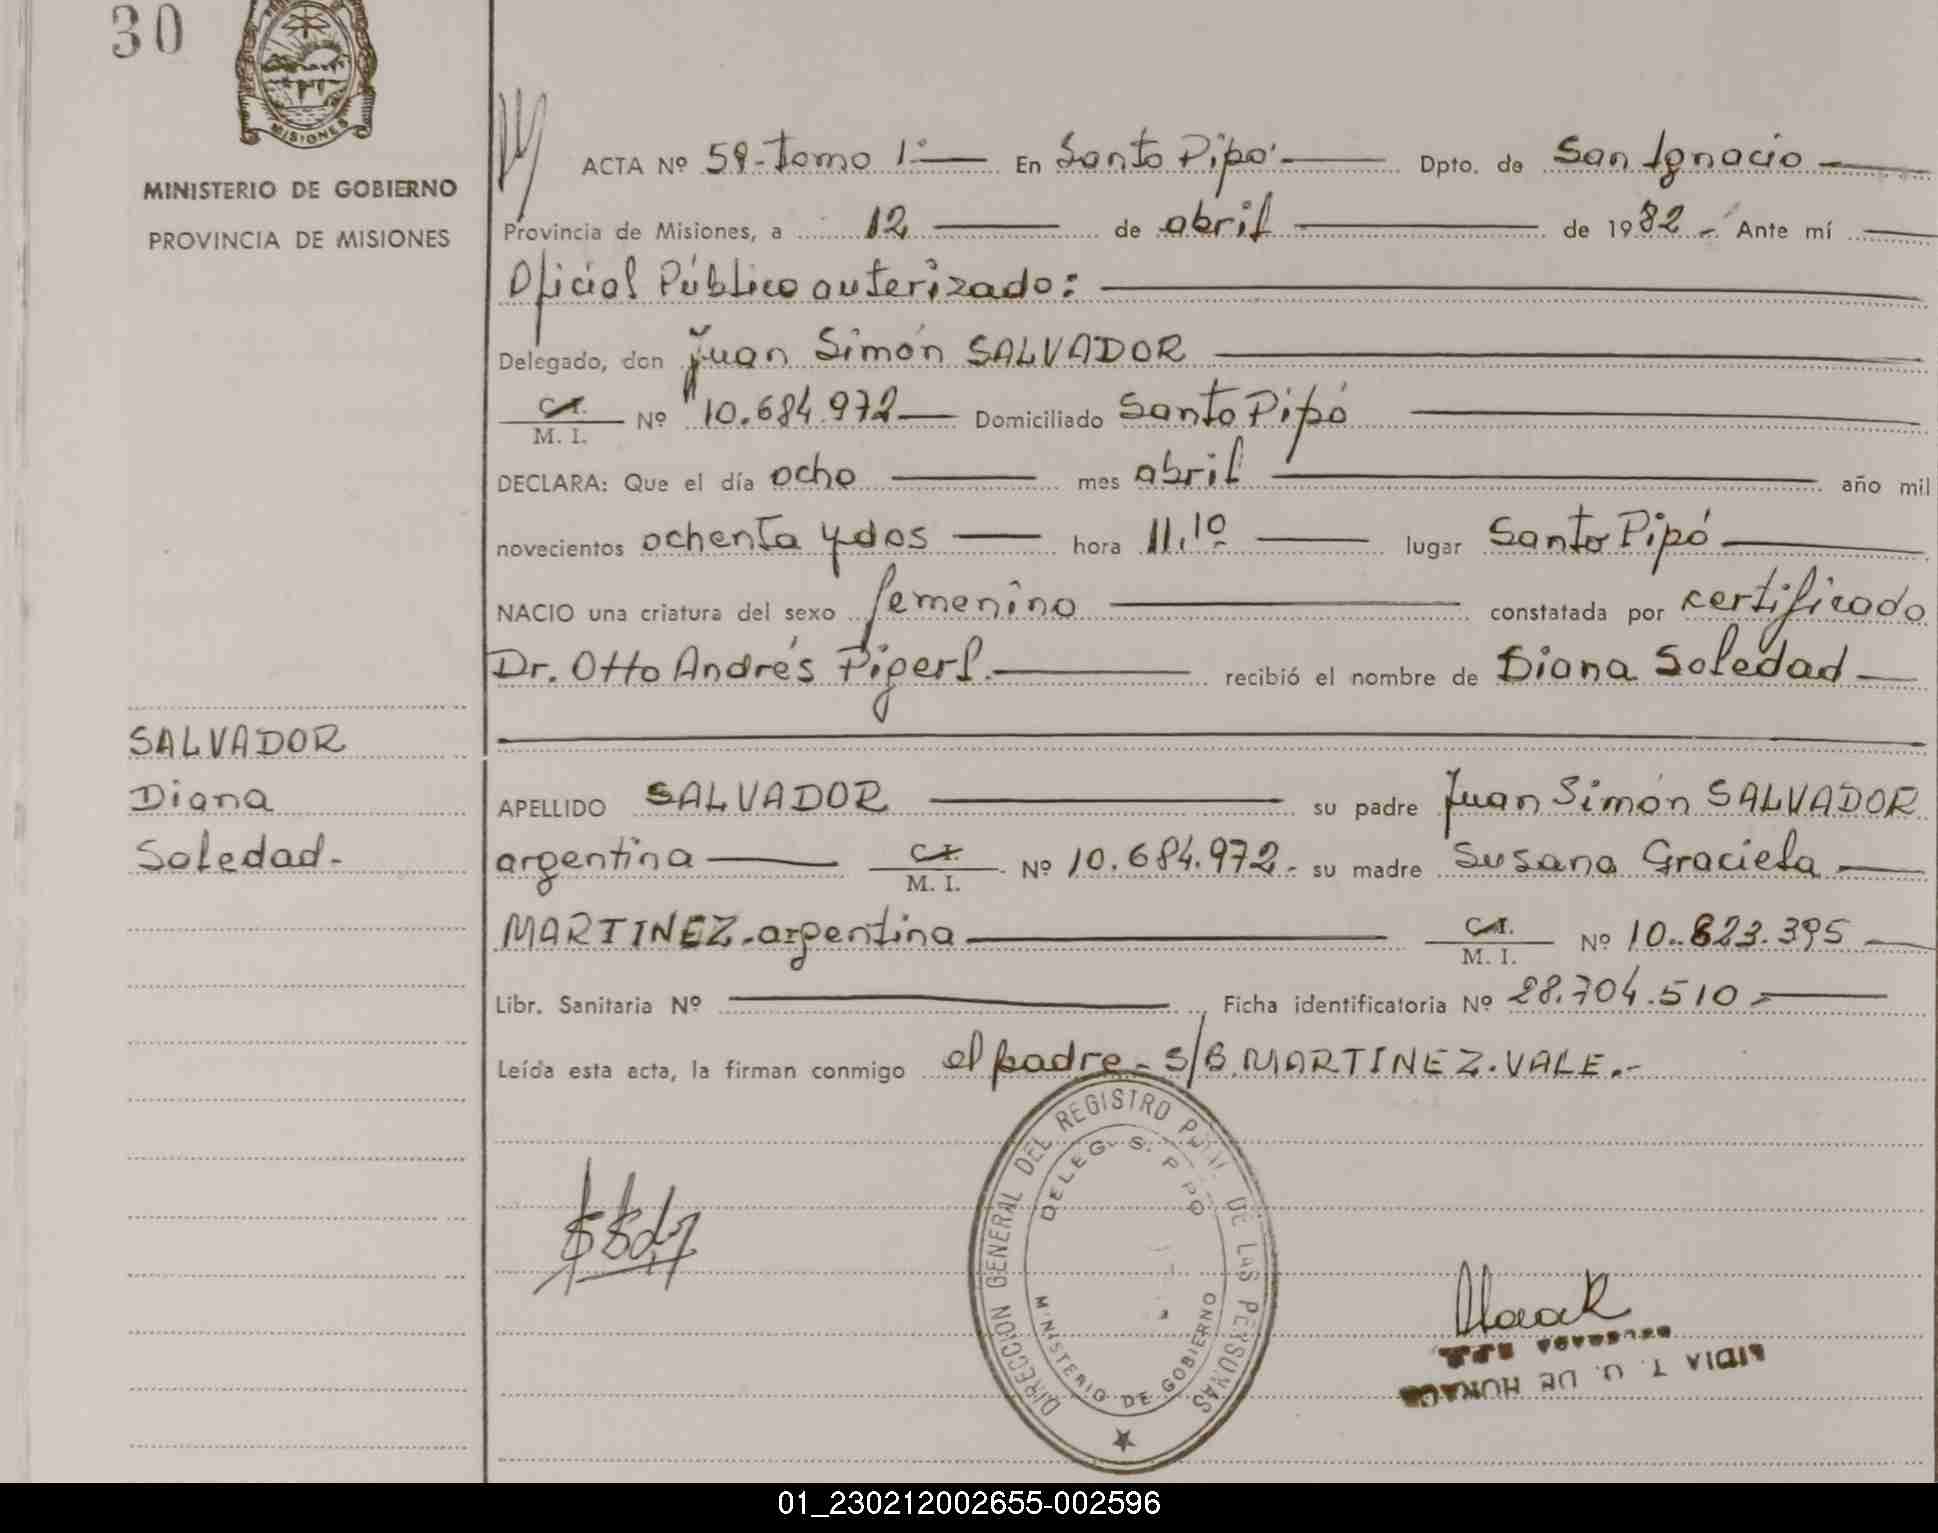 30
MISIONES
MINISTERIO DE GOBIERNO
PROVINCIA DE MISIONES
ACTA Nº 59-Tomo 1º En Santo Pipó Dpto. de San Ignacio
Provincia de Misiones, a 12 de abril de 1982.- Ante mí
Oficial Público auterizado:
Delegado, don Juan Simón SALVADOR
C.I. / M. I. Nº 10.684.972 Domiciliado Santo Pipó
DECLARA: Que el día ocho mes abril año mil
novecientos ochenta y dos hora 11.10 lugar Santo Pipó
NACIO una criatura del sexo femenino constatada por certificado
Dr. Otto Andrés Pigerl. recibió el nombre de Diana Soledad
SALVADOR
Diana
Soledad.-
APELLIDO SALVADOR su padre Juan Simón SALVADOR
argentina C.I. / M. I. Nº 10.684.972.- su madre Susana Graciela
MARTINEZ.argentina C.I. / M. I. Nº 10.823.395
Libr. Sanitaria Nº Ficha identificatoria Nº 28.704.510.-
Leída esta acta, la firman conmigo el padre.- S/B.MARTINEZ.VALE.-
DIRECCION GENERAL DEL REGISTRO DE LAS PERSONAS
DELEG. S. PIPO
MINISTERIO DE GOBIERNO
DELEGADA
T. U. DE
01_230212002655-002596